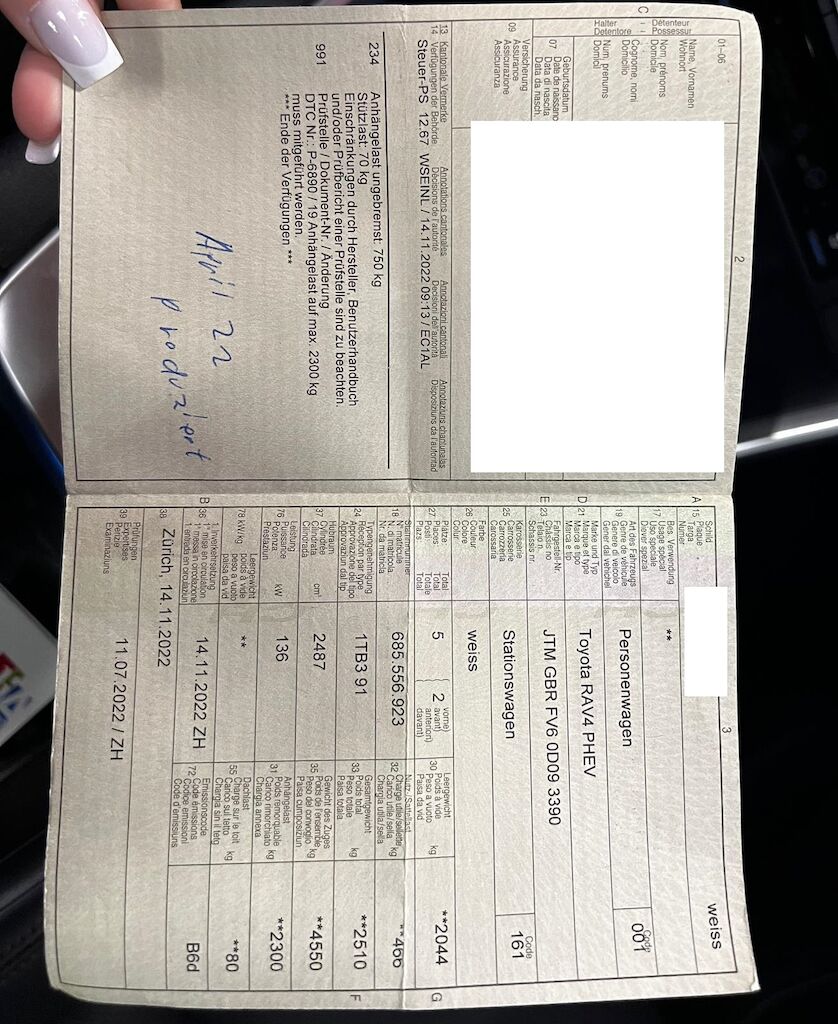 2
C
Halter - Détenteur
Detentore - Possessur
01-06
Name, Vornamen
Wohnort
Nom, prénoms
Domicile
Cognome, nomi
Domicilio
Num, prenums
Domicil
07
Geburtsdatum
Date de naissance
Data di nascita
Data da nasch.
09
Versicherung
Assurance
Assicurazione
Assicuranza
13 Kantonale Vermerke Annotations cantonales Annotazioni cantonali Annotaziuns chantunalas
14 Verfügungen der Behörde Décisions de l'autorité Decisioni dell'autorità Disposiziuns da l'autoritad
Steuer-PS 12.67 WSEINL / 14.11.2022 09:13 / EC1AL
234 Anhängelast ungebremst: 750 kg
Stützlast: 70 kg
Einschränkungen durch Hersteller, Benutzerhandbuch
und/oder Prüfbericht einer Prüfstelle sind zu beachten.
991 Prüfstelle / Dokument-Nr. / Änderung
DTC Nr.: P-6890 / 19 Anhängelast auf max. 2300 kg
muss mitgeführt werden.
*** Ende der Verfügungen ***
April 22
produziert
3
A 15
Schild
Plaque
Targa
Numer
weiss
17
Bes. Verwendung
Usage spécial
Uso speciale
Diever spezial
**
19
Art des Fahrzeugs
Genre de véhicule
Genere di veicolo
Gener dal vehichel
Personenwagen
Code
001
D 21
Marke und Typ
Marque et type
Marca e tipo
Marca e tip
Toyota RAV4 PHEV
E 23
Fahrgestell-Nr.
Châssis no
Telaio n.
Schassis nr.
JTM GBR FV6 0D09 3390
25
Karosserie
Carrosserie
Carrozzeria
Carossaria
Stationswagen
Code
161
26
Farbe
Couleur
Colore
Colur
weiss
27
Plätze Total
Places Total
Posti Totale
Plazs Total
5
2
vorne)
avant)
anteriori)
davant)
30
Leergewicht
Poids à vide
Peso a vuoto
Paisa da vid
kg
**2044
G
18
Stammnummer
N° matricule
N. di matricola
Nr. da matricla
685.556.923
32
Nutz-/Sattellast
Charge utile/sellette
Carico utile/sella
Chargia utila/sella
kg
**466
24
Typengenehmigung
Réception par type
Approvazione del tipo
Approvaziun dal tip
1TB3 91
33
Gesamtgewicht
Poids total
Peso totale
Paisa totala
kg
**2510
F
37
Hubraum
Cylindrée
Cilindrata
Cilindrada
cm³
2487
35
Gewicht des Zuges
Poids de l'ensemble
Peso del convoglio
Paisa cumposiziun
kg
**4550
76
Leistung
Puissance
Potenza
Prestaziun
kW
136
31
Anhängelast
Poids remorquable
Carico rimorchiato
Chargia annexa
kg
**2300
78 kW/kg
Leergewicht
poids à vide
peso a vuoto
paisa da vid
**
55
Dachlast
Charge sur le toit
Carico sul tetto
Chargia sin il tetg
kg
**80
B 36
1. Inverkehrsetzung
1re mise en circulation
1a messa in circolazione
1. entrada en circulaziun
14.11.2022 ZH
72
Emissionscode
Code émissions
Codice emissioni
Code d'emissiuns
B6d
38
Zürich, 14.11.2022
39
Prüfungen
Expertises
Perizie
Examinaziuns
11.07.2022 / ZH